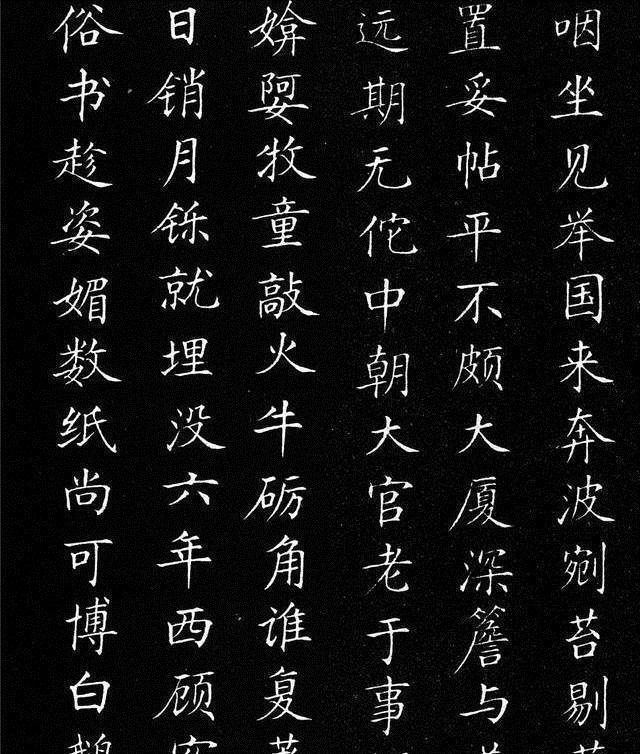 咽坐见举国来奔波剜苔剔
置妥帖平不颇大厦深簷与
远期无佗中朝大官老于事
媕娿牧童敲火牛砺角谁复
日销月铄就埋没六年西顾
俗书趁姿媚数纸尚可博白